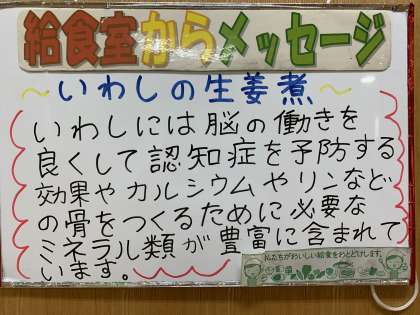 給食室からメッセージ
～いわしの生姜煮～
いわしには脳の働きを
良くして認知症を予防する
効果やカルシウムやリンなど
の骨をつくるために必要な
ミネラル類が豊富に含まれて
います。
私たちがおいしい給食をおとどけします。